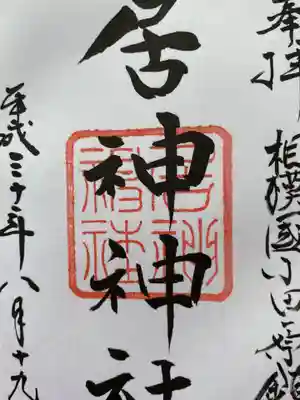 奉拝 相模國小田原鎮
居神神社
居神神社
平成三十年八月十九